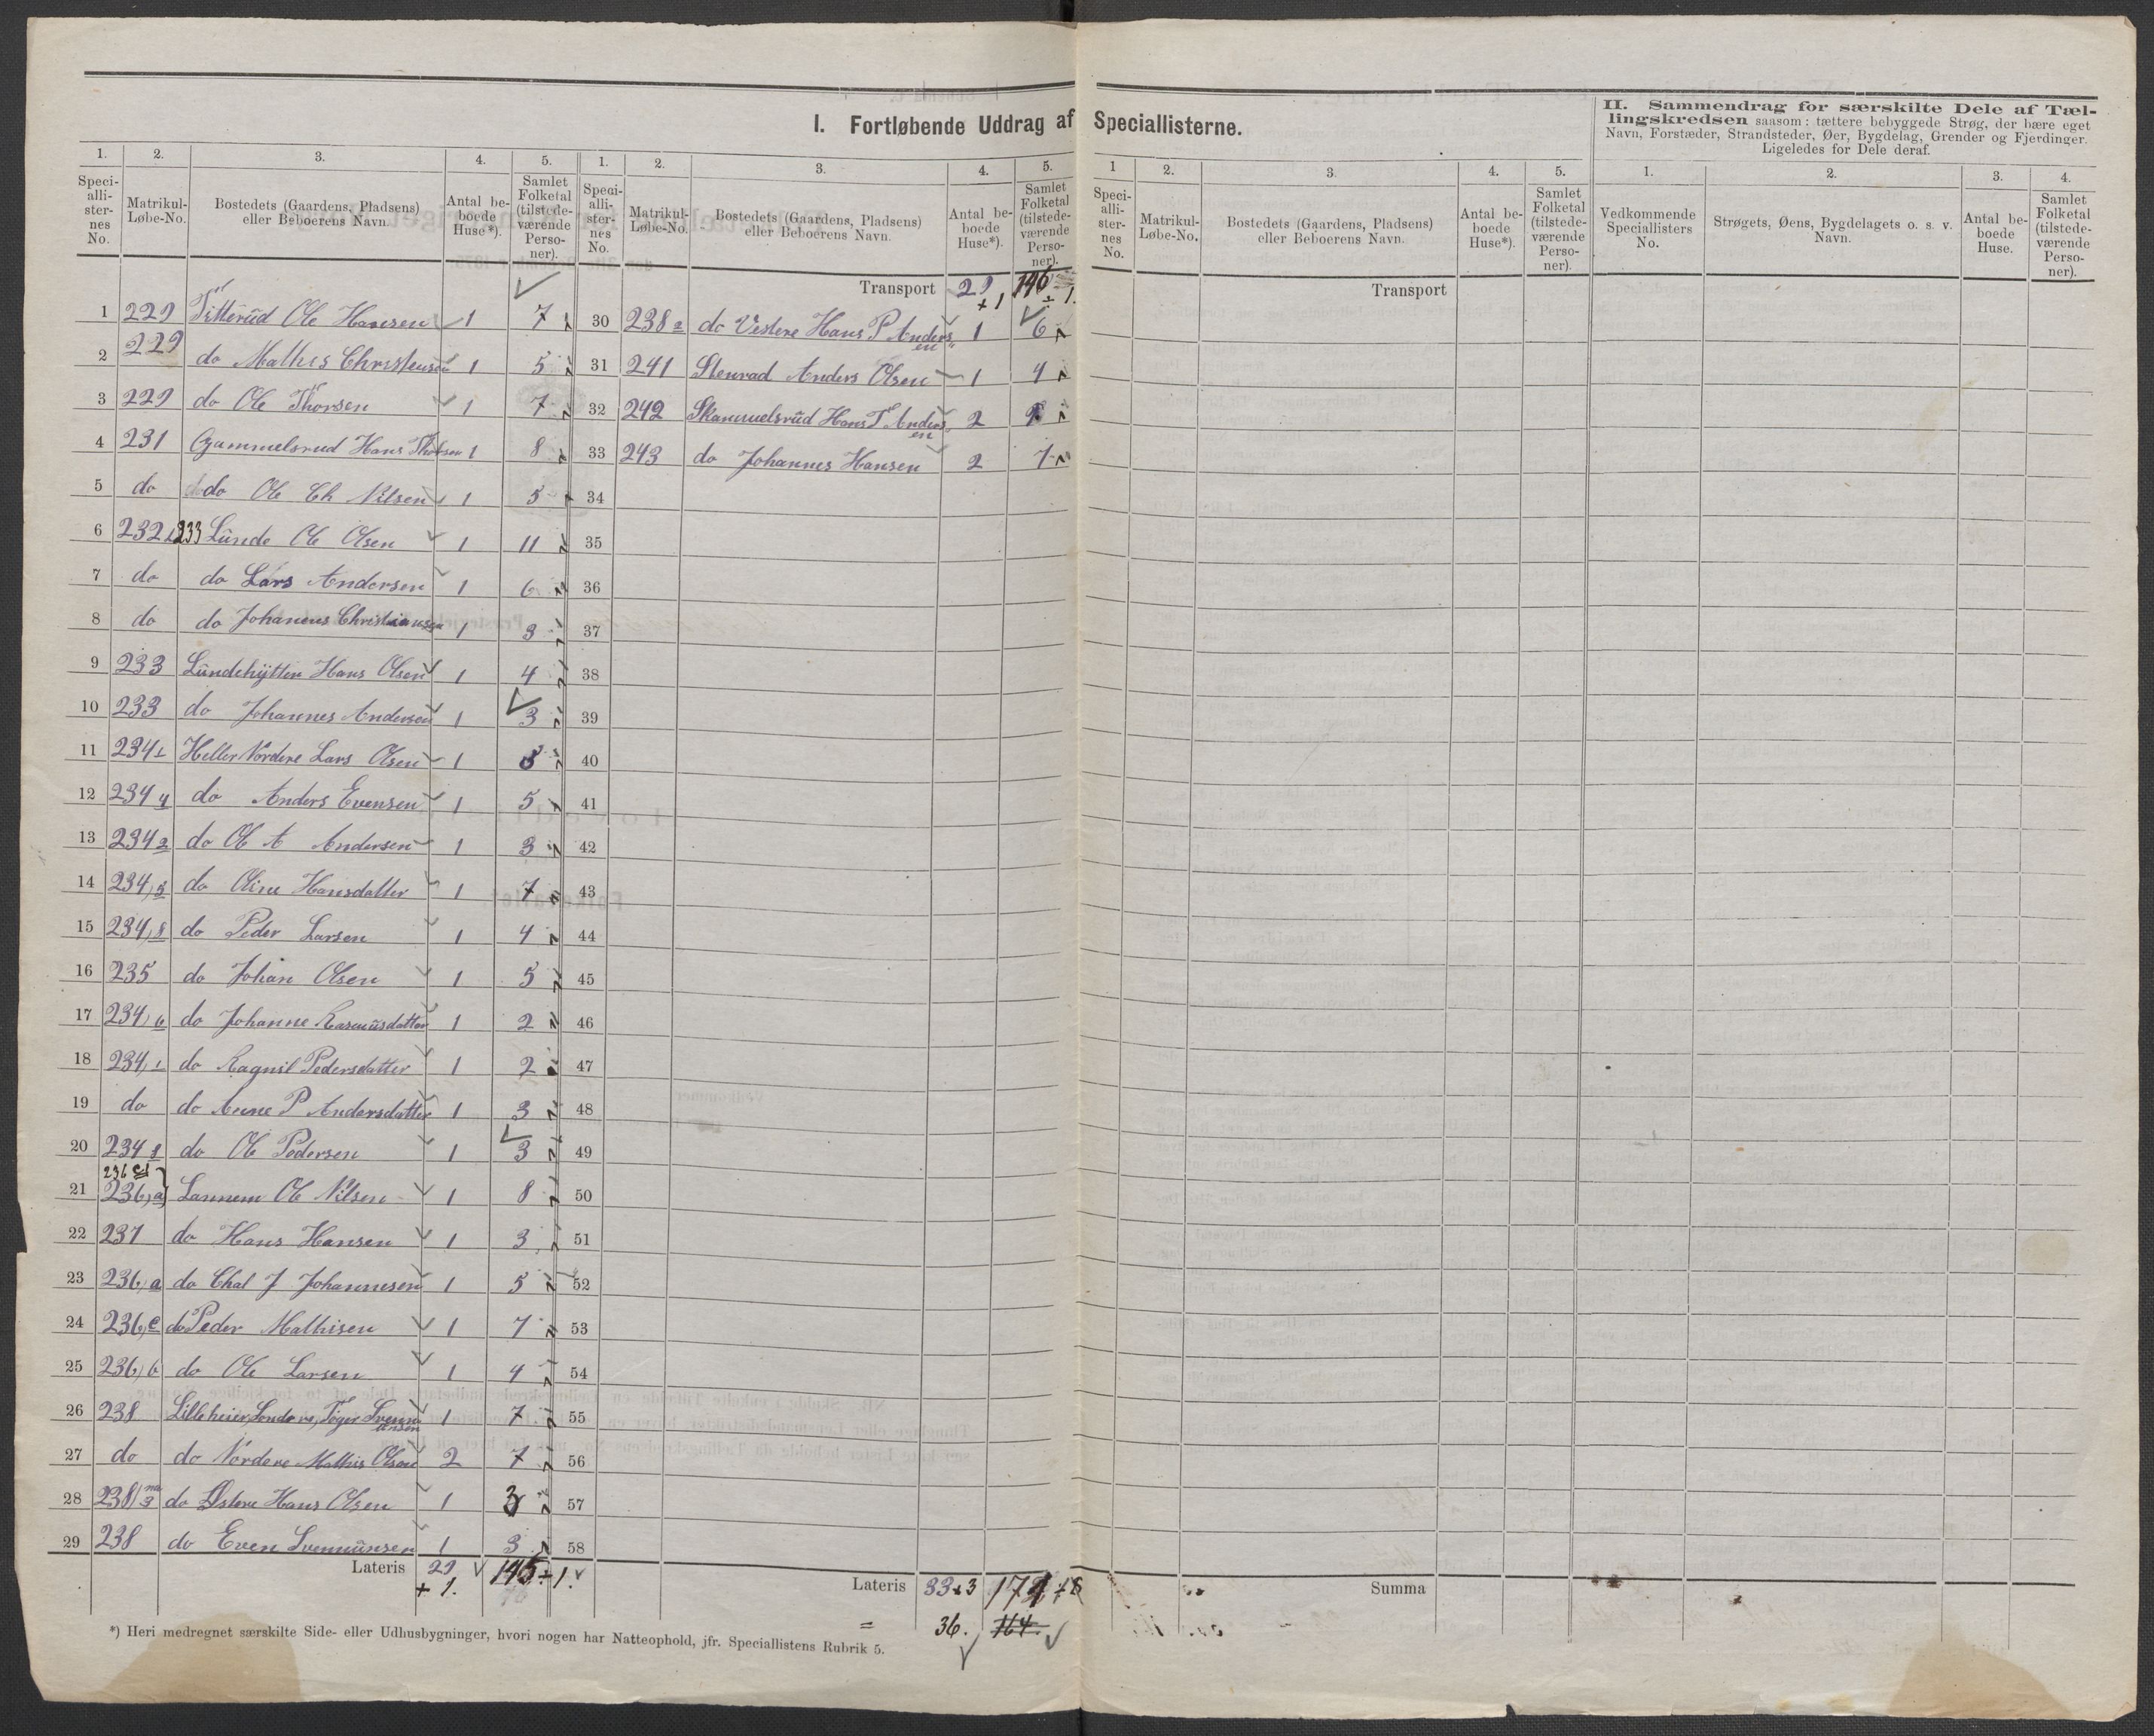 I. Fortløbende Uddrag af Speciallisterne.
II. Sammendrag for særskilte Dele af Tæl-
lingskredsen saasom: tættere bebyggede Strøg, der bære eget
Navn, Forstæder, Strandsteder, Øer, Bygdelag, Grender og Fjerdinger.
Ligeledes for Dele deraf.
1. 2. 3. 4. 5. 1. 2. 3. 4. 5. 1 2. 3. 4. 5. 1. 2. 3. 4.
Speci-alli-ster-nes No. Matrikul-Løbe-No. Bostedets (Gaardens, Pladsens) eller Beboerens Navn. Antal be-boede Huse*). Samlet Folketal (tilstede-værende Perso-ner).
Speci-alli-ster-nes No. Matrikul-Løbe-No. Bostedets (Gaardens, Pladsens) eller Beboerens Navn. Antal be-boede Huse*). Samlet Folketal (tilstede-værende Perso-ner).
Speci-alli-ster-nes No. Matrikul-Løbe-No. Bostedets (Gaardens, Pladsens) eller Beboerens Navn. Antal be-boede Huse*). Samlet Folketal (tilstede-værende Perso-ner).
Vedkommende Speciallisters No. Strøgets, Øens, Bygdelagets o. s. v. Navn. Antal be-boede Huse. Samlet Folketal (tilstede-værende Perso-ner).
1 229 Titterud Ole Hansen 1 7
2 229 do Mathis Christensen 1 5
3 229 do Ole Thorsen 1 7
4 231 Gammelsrud Hans Thorsen 1 8
5 do do Ole Ch Nilsen 1 5
6 232 233 Lunde Ole Olsen 1 11
7 do do Lars Andersen 1 6
8 do do Johannes Christiansen 1 3
9 233 Lundehytten Hans Olsen 1 4
10 233 do Johannes Andersen 1 3
11 234 Heller Nordere Lars Olsen 1
12 234 4 do Anders Evensen 1 5
13 234 2 do Ole A Andersen 1 3
14 234, 5 do Oline Hansdatter 1 7
15 234, 8 do Peder Larsen 1 4
16 235 do Johan Olsen 1 5
17 234, 6 do Johanne Rasmusdatter 1 2
18 234, 1 do Ragnil Pedersdatter 1 2
19 do do Anne P Andersdatter 1 3
20 234 do Ole Pedersen 1 3
21 236, a Lannem Ole Nilsen 1 8
22 237 do Hans Hansen 1 3
23 236, a do Chal J Johannesen 1 5
24 236, c do Peder Mathisen 1 7
25 236, b do Ole Larsen 1 4
26 238 Lilleheier Sondre, Toger Svenn ansen 1 7
27 do do Nordere Mathis Olsen 2 7
28 238 do Østere Hans Olsen 1 3
29 238 do Even Svennunsen 1 3
Lateris 29 + 1. 145 + 1.
Transport 29 +1 146 + 1.
30 238 2 do Vestere Hans P Anders en 1 6
31 241 Stenrad Anders Olsen 1 4
32 242 Skamruelsrud Hans T Anders en 2
33 243 do Johannes Hansen 2 7
34
35
36
37
38
39
40
41
42
43
44
45
46
47
48
49
50
51
52
53
54
55
56
57
58
Lateris 33+3
= 36. 164
Transport
Summa
*) Heri medregnet særskilte Side- eller Udhusbygninger, hvori nogen har Natteophold, jfr. Speciallistens Rubrik 5.